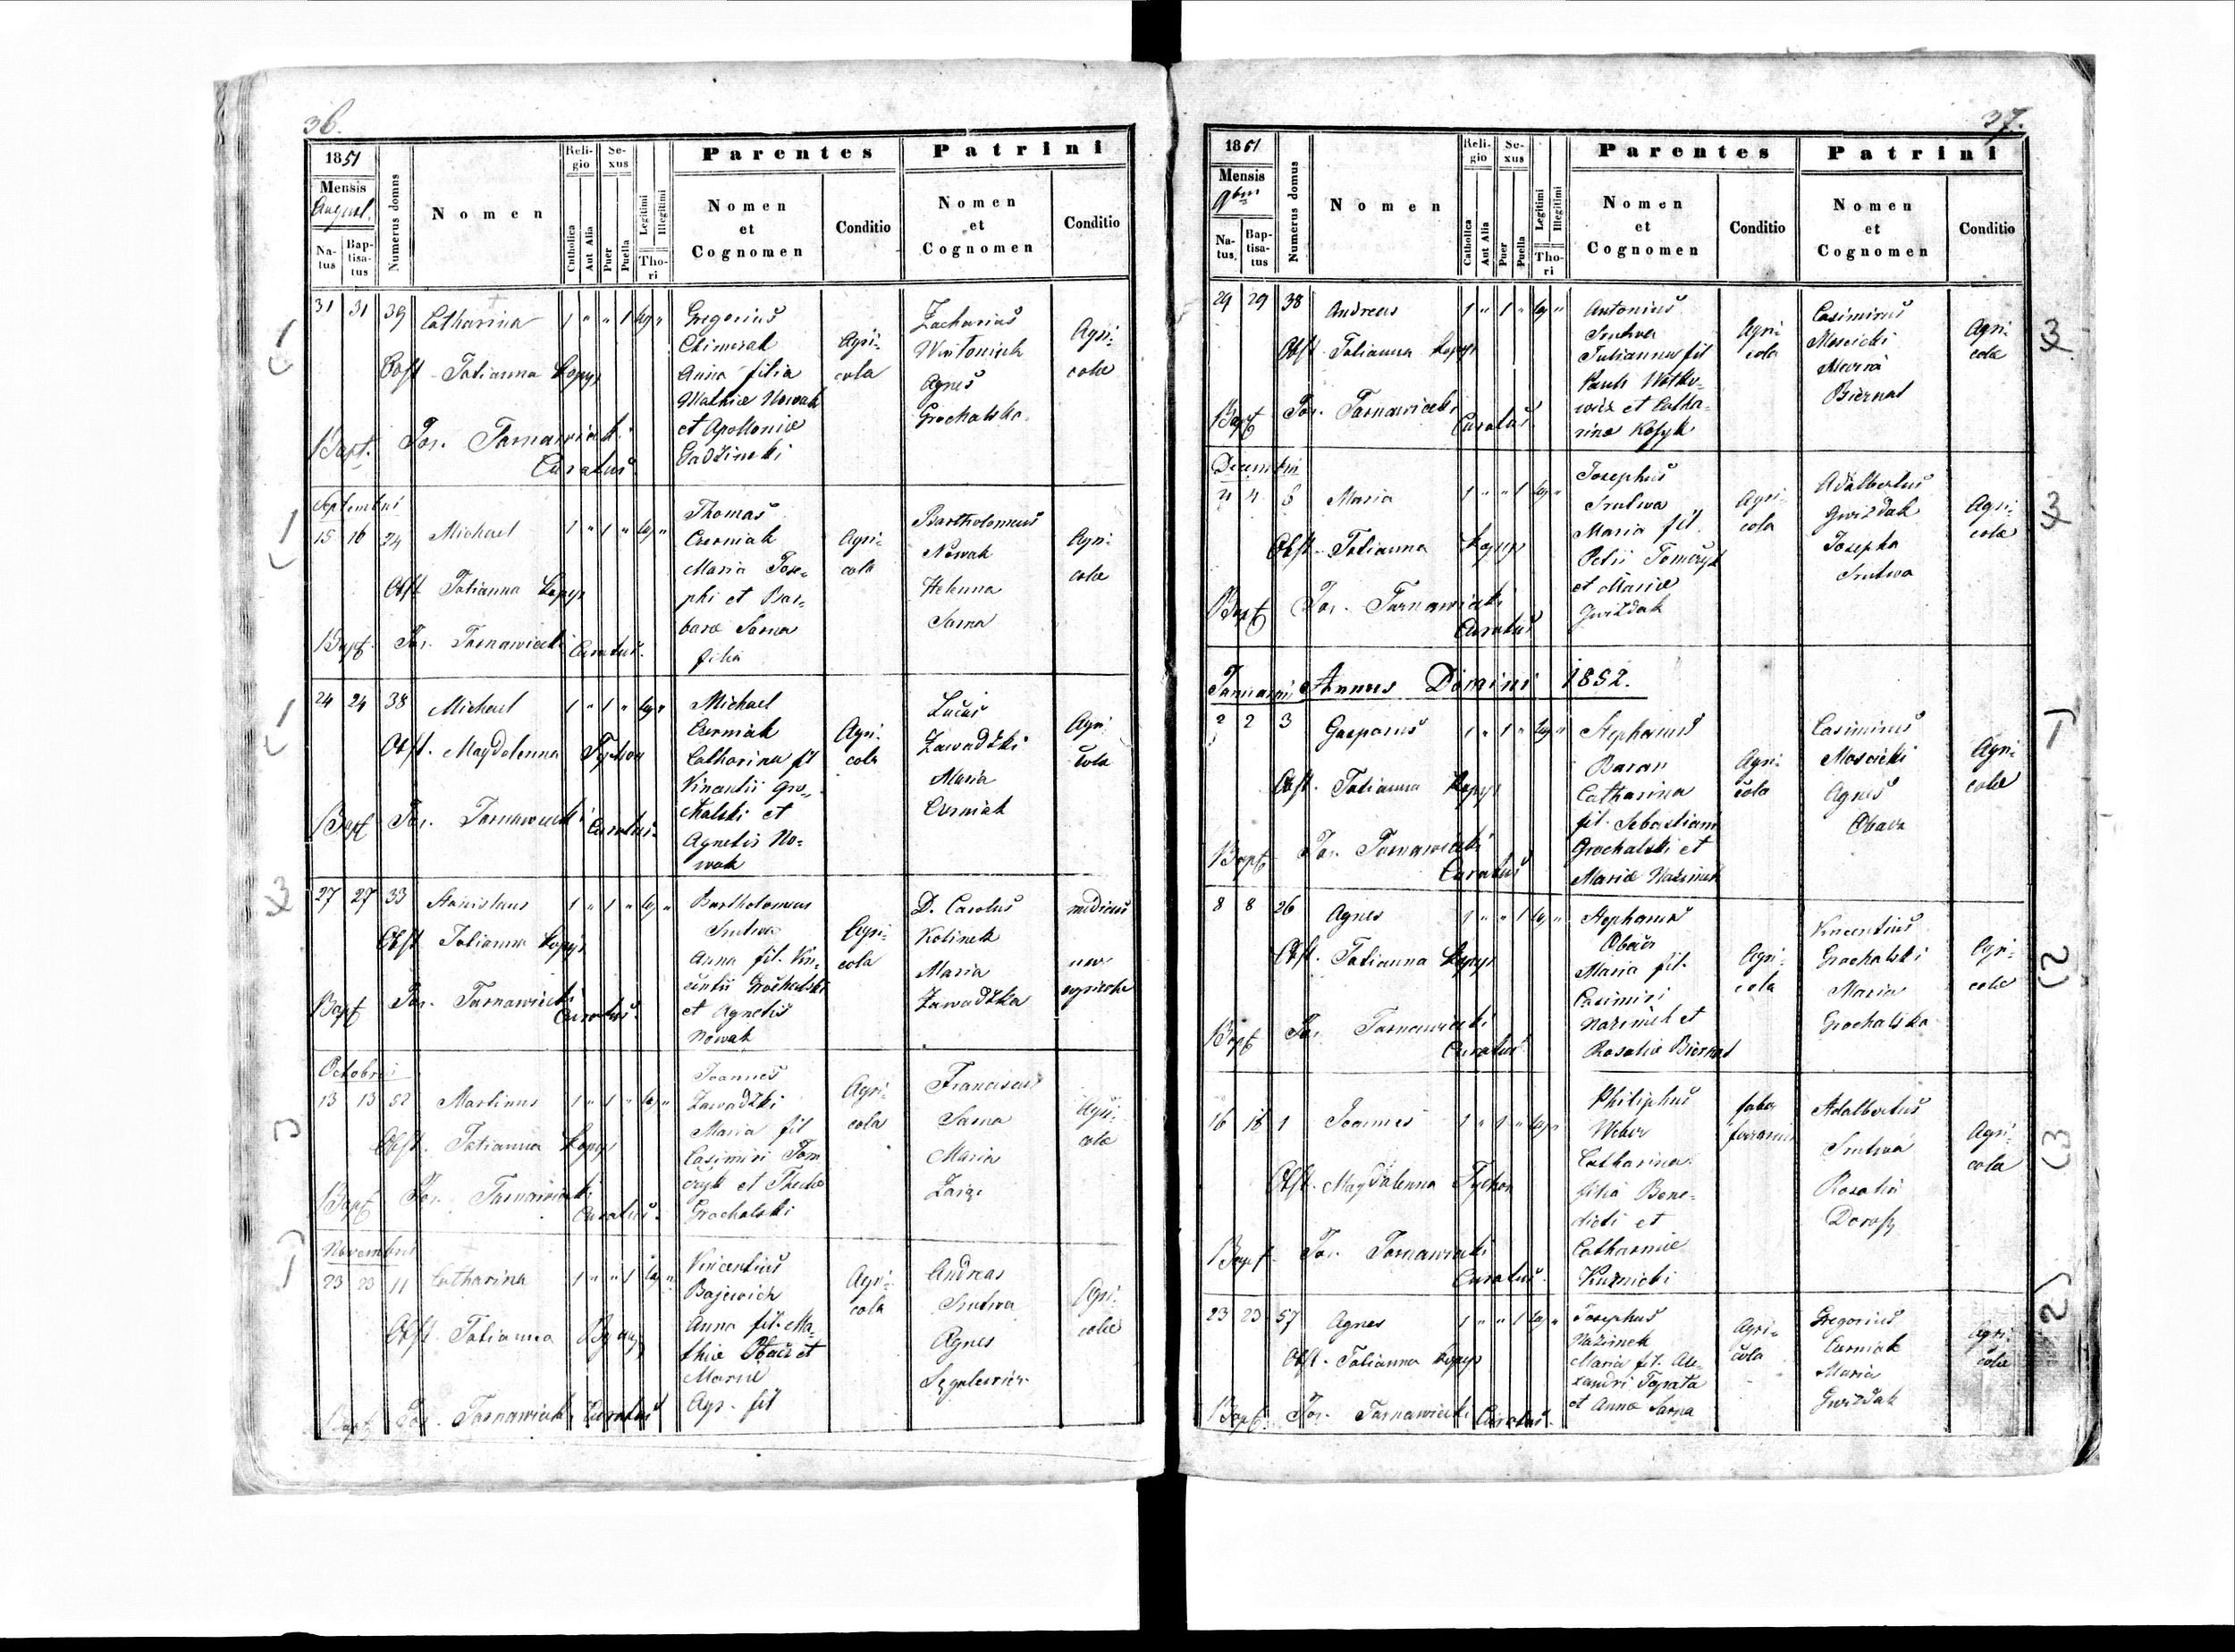 36.
1851
Mensis
August.
Natus
Baptisatus
Numerus domus
Nomen
Religio
Catholica
Aut Alia
Sexus
Puer
Puella
Legitimi
Illegitimi
Thori
Parentes
Nomen
et
Cognomen
Conditio
Patrini
Nomen
et
Cognomen
Conditio
31 31 39 Catharina 1 " " 1 leg "
Obst Tatianna Kopys
Bapt. Jos. Tarnawiecki
Curatus
Gregorius
Anna filia
Mathiæ Nowak
et Apolloniæ
Gadzinski
Agri-
cola
Zacharias
Agnes
Grochalska
Agri-
colæ
Septembris
15 16 24 Michael 1 " 1 " leg "
Obst Tatianna Kopys
Bapt. Jos. Tarnawiecki Curatus.
Thomas
Czerniak
Maria Jose-
phi et Bar-
baræ Sarna
filia
Agri-
cola
Bartholomeus
Nowak
Helenna
Sarna
Agri-
colæ
24 24 38 Michael 1 " 1 " leg "
Obst. Magdalenna Tychon
Bapt Jos. Tarnawiecki Curatus.
Michael
Czerniak
Catharina fil
Vincentii Gro-
chalski et
Agnetis No-
wak
Agri-
cola
Lucas
Zawadzki
Maria
Czerniak
Agri-
cola
27 27 33 Stanislaus 1 " 1 " leg "
Obst Tatianna Kopys
Bapt Jos. Tarnawiecki
Curatus.
Bartholomeus
Srutwa
Anna fil. Vin-
centii Grochalski
et Agnetis
Nowak
Agri-
cola
D. Carolus
Kolinek
Maria
Zawadzka
medicus
uxor
agricolæ
Octobris
13 13 52 Martinus 1 " 1 " leg "
Obst. Tatianna Kopys
Bapt Jos. Tarnawiecki
Curatus.
Joannes
Zawadzki
Maria fil
Casimiri Tom
czyk et Theclæ
Grochalski
Agri-
cola
Franciscus
Sarna
Maria
Agri-
colæ
Novembris
23 23 11 Catharina 1 " " 1 leg "
Obst. Tatianna
Bapt Jos. Tarnawiecki Curatus
Vincentius
Bajewicz
Anna fil. Ma-
thiæ Obacz et
Mariæ
Agr. fil
Agri-
cola
Andreas
Srutwa
Agnes
Agri-
colæ
37.
1851
Mensis
9bris
Natus.
Baptisatus
Numerus domus
Nomen
Religio
Catholica
Aut Alia
Sexus
Puer
Puella
Legitimi
Illegitimi
Thori
Parentes
Nomen
et
Cognomen
Conditio
Patrini
Nomen
et
Cognomen
Conditio
29 29 38 Andreas 1 " 1 " leg "
Obst Tatianna Kopys
Bapt Jos. Tarnawiecki
Curatus.
Antonius
Srutwa
Julianna fil
Pauli Wołko-
wicz et Catha-
rinæ
Agri-
cola
Casimirus
Moscicki
Biernat
Agri-
colæ
Decembris
4 4 6 Maria 1 " " 1 leg "
Obst Tatianna Kopys
Bapt Jos. Tarnawiecki
Curatus
Josephus
Srutwa
Maria fil.
Petri Tomczyk
et Mariæ
Gwizdak
Agri-
cola
Adalbertus
Gwizdak
Josepha
Srutwa
Agri-
colæ
Januarii Annus Domini 1852.
2 2 3 Gasparus 1 " 1 " leg "
Obst. Tatianna Kopys
Bapt Jos. Tarnawiecki
Curatus
Stephanus
Baran
Catharina
fil. Sebastiani
Grochalski et
Mariæ Nazimek
Agri-
cola
Casimirus
Moscicki
Agnes
Obacz
Agri-
colæ
8 8 26 Agnes 1 " " 1 leg "
Obst. Tatianna Kopys
Bapt Jos Tarnawiecki
Curatus
Stephanus
Obacz
Maria fil.
Casimiri
Nazimek et
Rosaliæ Biernat
Agri-
cola
Vincentius
Grochalski
Maria
Grochalska
Agri-
colæ
16 18 1 Joannes 1 " 1 " leg "
Obst. Magdalenna Tychon
Bapt Jos. Tarnawiecki
Curatus.
Philiphus
Weber
Catharina
filia Bene-
dicti et
Catharinæ
Kuznicki
faber
ferrarius
Adalbertus
Srutwa
Rosalia
Agri-
cola
23 23 57 Agnes 1 " " 1 leg "
Obst. Tatianna Kopys
Bapt. Jos. Tarnawiecki Curatus.
Josephus
Nazimek
Maria fil. Ale-
xandri Topata
et Annæ Sarna
Agri-
cola
Gregorius
Czerniak
Maria
Gwizdak
Agri-
colæ